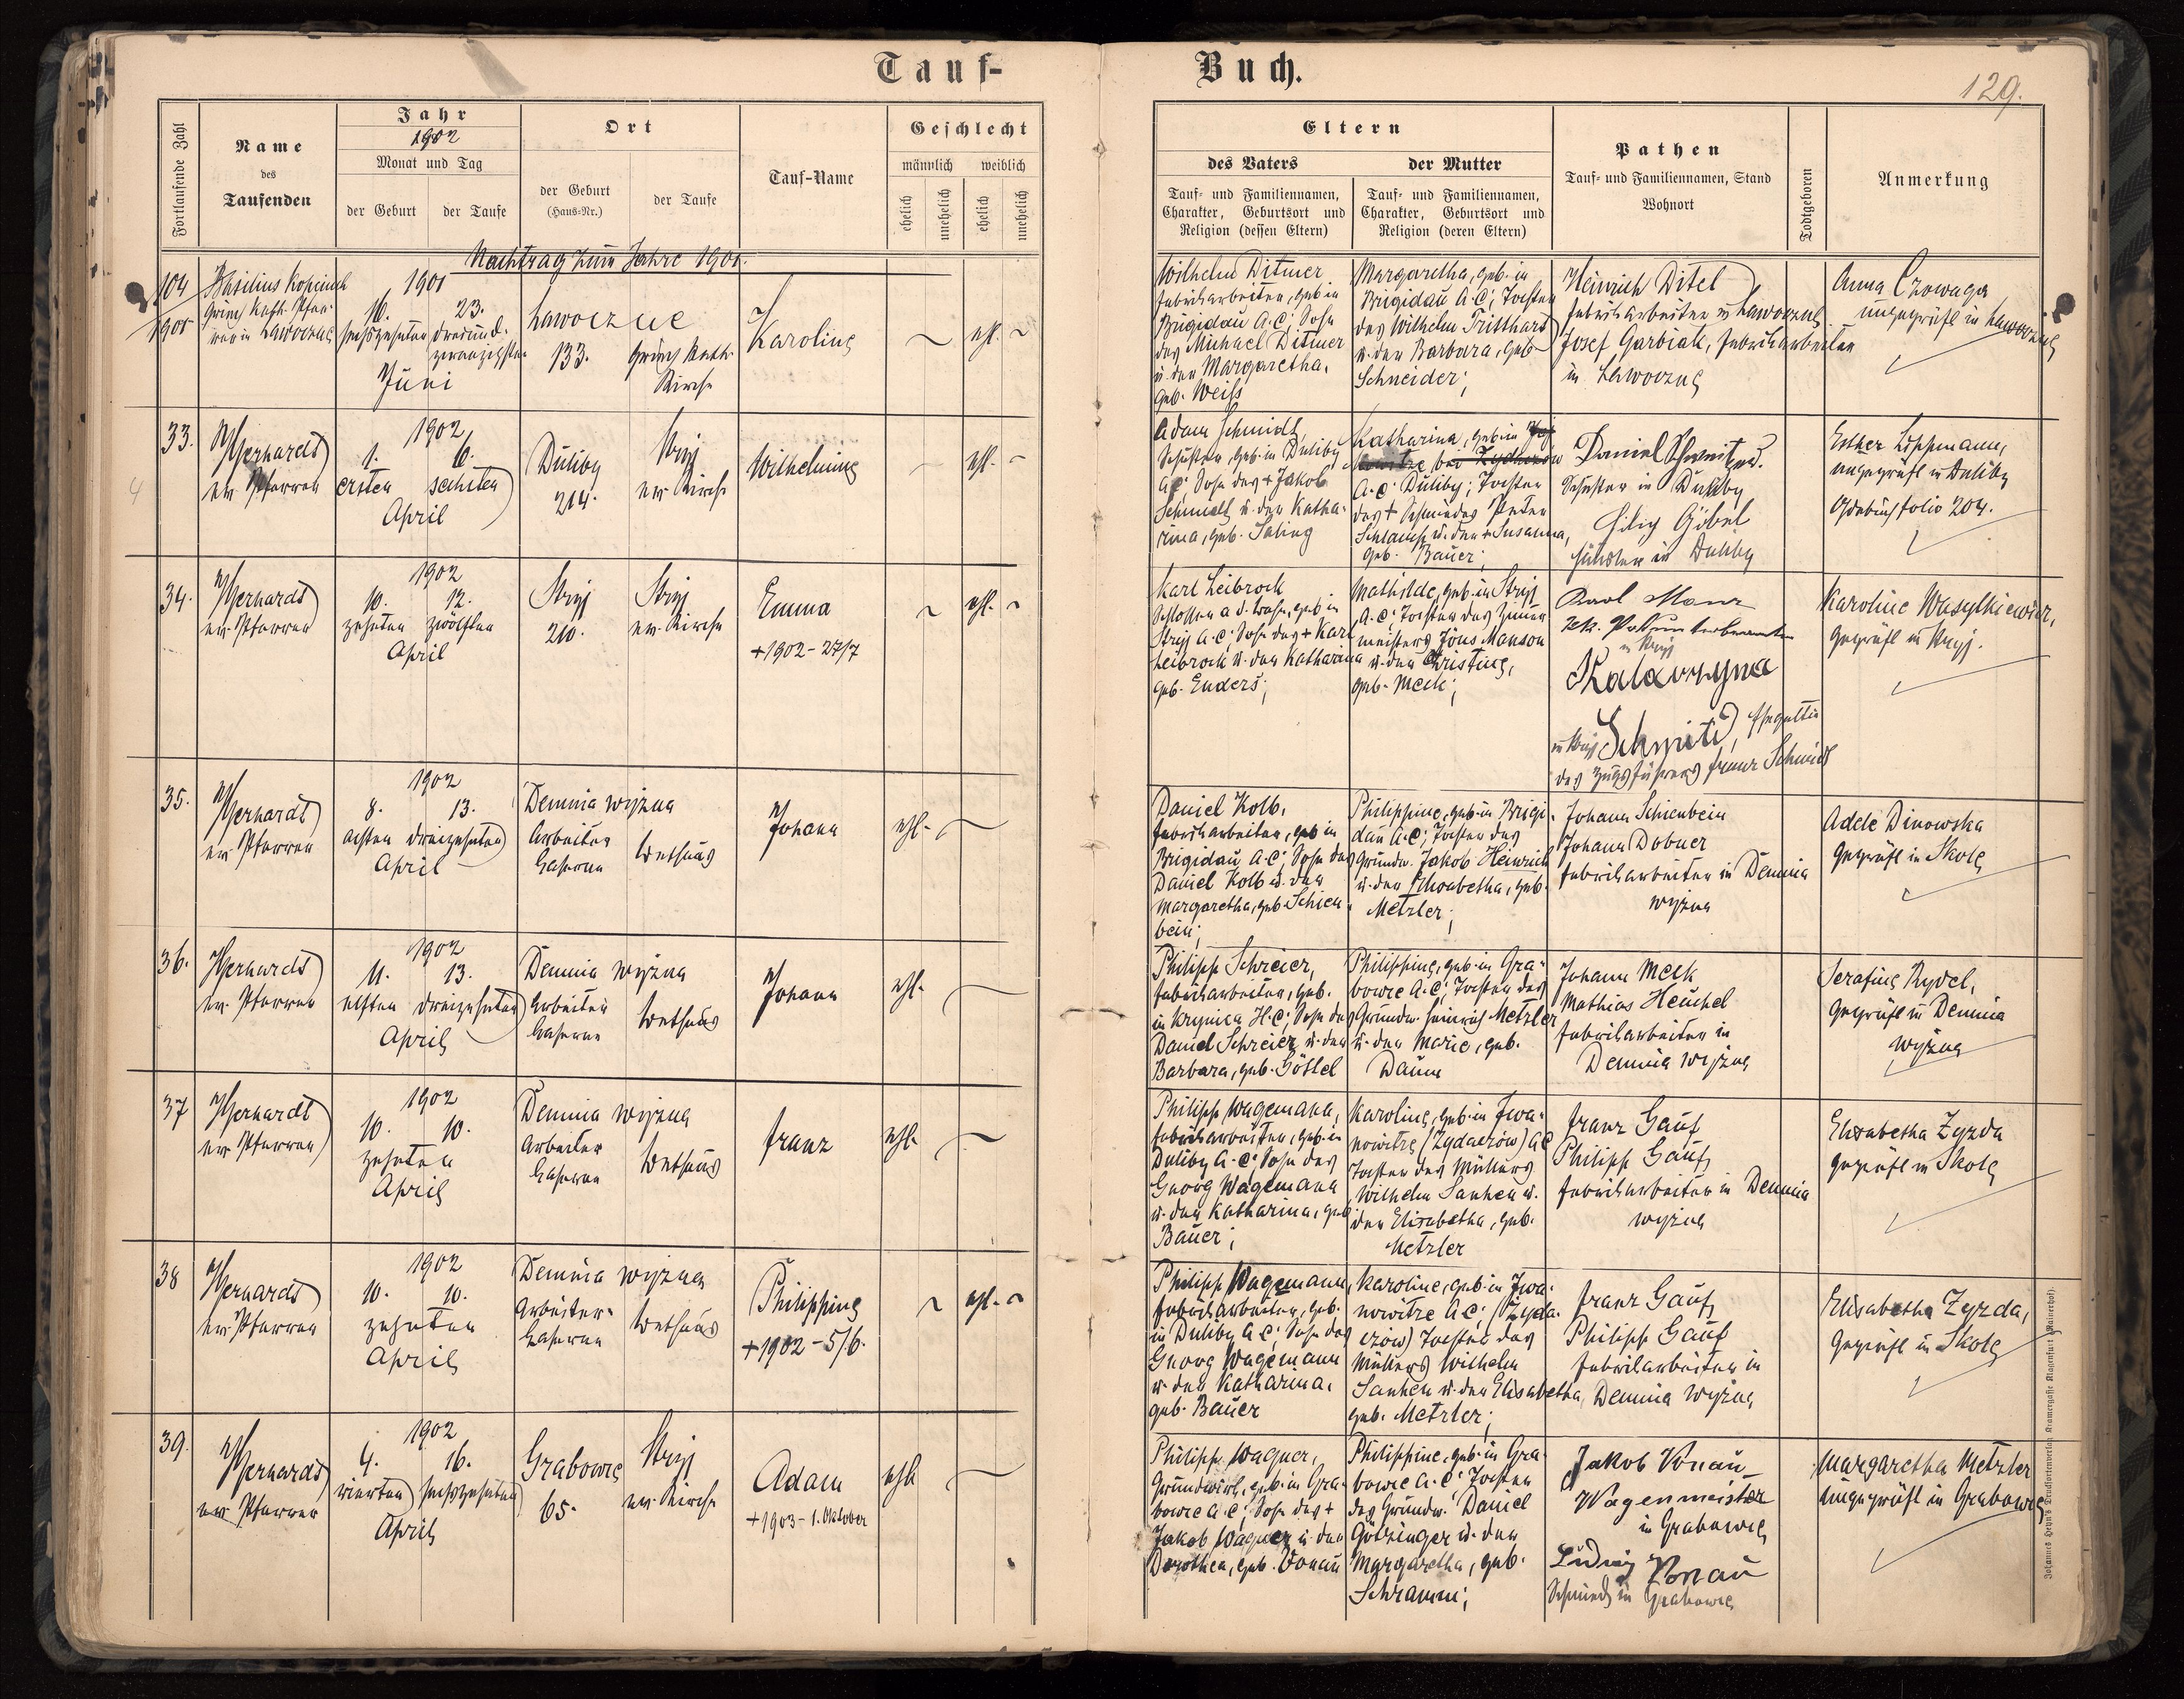 Tauf-
Buch.
129.
Fortlaufende Zahl
Name
des
Taufenden
Jahr
1902
Monat und Tag
der Geburt
der Taufe
Ort
der Geburt
(Haus-Nr.)
der Taufe
Tauf-Name
Geschlecht
männlich
weiblich
ehelich
unehelich
ehelich
unehelich
Eltern
des Vaters
Tauf- und Familiennamen,
Charakter, Geburtsort und
Religion (dessen Eltern)
der Mutter
Tauf- und Familiennamen,
Charakter, Geburtsort und
Religion (deren Eltern)
Pathen
Tauf- und Familiennamen, Stand
Wohnort
Todtgeboren
Anmerkung
Nachtrag zum Jahre 1901.
104
1901
Basilius
griech. kath. Pfar-
rer in Lawoczne
1901
16. 23.
sechszehnten dreiund-
zwanzigsten
Juni
Lawoczne
133.
Griech. kath.
Kirche
Karoline
ehl.
Wilhelm Ditmer
Fabriksarbeiter, geb. in
Brigidau A.C; Sohn
des Michael Ditmer
u. der Margaretha,
geb. Weiss
Margaretha, geb. in
Brigidau A.C; Tochter
des Wilhelm Tritthart
u. der Barbara, geb.
Schneider;
Heinrich Ditel
Fabriksarbeiter in Lawoczne
Josef Garbiak, Fabriksarbeiter
in Lawoczne
Anna Czowaga
ungeprüft in Lawoczne
33.
ev. Pfarrer
1902
1. 6.
ersten sechsten
April
Duliby
214.
Stryj
ev. Kirche
Wilhelmine
ehl.
Adam Schmidt,
Schuster, geb. in Duliby
A.C; Sohn des + Jakob
Schmidt u. der Katha-
rina, geb. Saling
Katharina, geb. in
bei Zydaczow
A.C. Duliby; Tochter
des + Schmiedes Peter
u. der + Susanna,
geb. Bauer;
Daniel
Schuster in Duliby
Filip Göbel
in Duliby
Esther Lippmann,
ungeprüft in Duliby
folio 204.
34.
ev. Pfarrer
1902
10. 12.
zehnten zwölften
April
Stryj
210.
Stryj
ev. Kirche
Emma
+1902-27/7
ehl.
Karl Leibrock
Schlosser a. d. Bahn, geb. in
Stryj A.C; Sohn des + Karl
Leibrock u. der Katharina
geb. Enders;
Mathilde, geb. in Stryj
A.C; Tochter des Zimmer-
meisters Jöns Manson
u. der Christine,
geb. Meck;
in Stryj
Katarzyna
in Stryj Schmitd, Ehegattin
des Zugsführers Franz Schmidt
Karoline Wasylkiewicz,
Geprüft in Stryj.
35.
ev. Pfarrer
1902
8. 13.
achten dreizehnten
April
Demnia wyżna
Arbeiter
Caserne
Bethaus
Johann
ehl.
Daniel Kolb,
Fabriksarbeiter, geb. in
Brigidau, A.C; Sohn des
Daniel Kolb u. der
Margaretha, geb. Schien-
bein;
Philippine, geb. in Brigi-
dau A.C; Tochter des
Grundw. Jakob Heinrich
u. der Elisabetha, geb.
Metzler;
Johann Schienbein
Johann Dobner
Fabriksarbeiter in Demnia
wyżna
Adele Dinowska
geprüft in Skole
36.
ev. Pfarrer
1902
11. 13.
elften dreizehnten
April
Demnia wyżna
Arbeiter
Caserne
Bethaus
Johann
ehl.
Philipp Schreier,
Fabriksarbeiter, geb.
in Krynica H.C; Sohn des
Daniel Schreier u. der
Barbara, geb. Göttel
Philippine, geb. in Gra-
bowce A.C; Tochter des
Grundw. Heinrich Metzler
u. der Marie, geb.
Daum
Johann Meck
Mathias Heuchel
Fabriksarbeiter in
Demnia wyżna
Serafine Rydel,
Geprüft in Demnia
wyżna
37
ev. Pfarrer
1902
10. 10.
zehnten
April
Demnia wyżna
Arbeiter
Caserne
Bethaus
Franz
ehl.
Philipp Wagemann,
Fabriksarbeiter, geb. in
Duliby A.C; Sohn des
Georg Wagemann
u. der Katharina, geb.
Bauer;
Karoline, geb. in Iwa-
nowitze (Zydaczów) AC
Tochter des Müllers
Wilhelm Sanken u.
der Elisabetha, geb.
Metzler
Franz Gauf
Philipp Gauf
Fabriksarbeiter in Demnia
wyżna
Elisabetha Zyzda
geprüft in Skole
38
ev. Pfarrer
1902
10. 10.
zehnten
April
Demnia wyżna
Arbeiter-
Caserne
Bethaus
Philippine
+1902-5/6.
ehl.
Philipp Wagemann,
Fabriksarbeiter, geb.
in Duliby A.C; Sohn des
Georg Wagemann
u. der Katharina,
geb. Bauer
Karoline, geb. in Iwa-
nowitze A.C; (Zyda-
czów) Tochter des
Müllers Wilhelm
Sanken u. der Elisabetha,
geb. Metzler;
Franz Gauf
Philipp Gauf
Fabriksarbeiter in
Demnia wyżna
Elisabetha Zyzda,
geprüft in Skole
39.
ev. Pfarrer
1902
4. 16.
vierten sechszehnten
April
Grabowce
65.
Stryj
ev. Kirche
Adam
+1903-1. Oktober
ehl
Philipp Wagner,
Grundwirth, geb. in Gra-
bowce A.C; Sohn des +
Jakob Wagner u. der
Dorothea, geb. Vonau
Philippine, geb. in Gra-
bowce A.C; Tochter
des Grundw. Daniel
Götzinger u. der
Margaretha, geb.
Schramm;
Jakob Vonau
Wagenmeister
in Grabowce
Ludwig Vonau
Schmied in Grabowce
Margaretha Metzler
ungeprüft in Grabowce